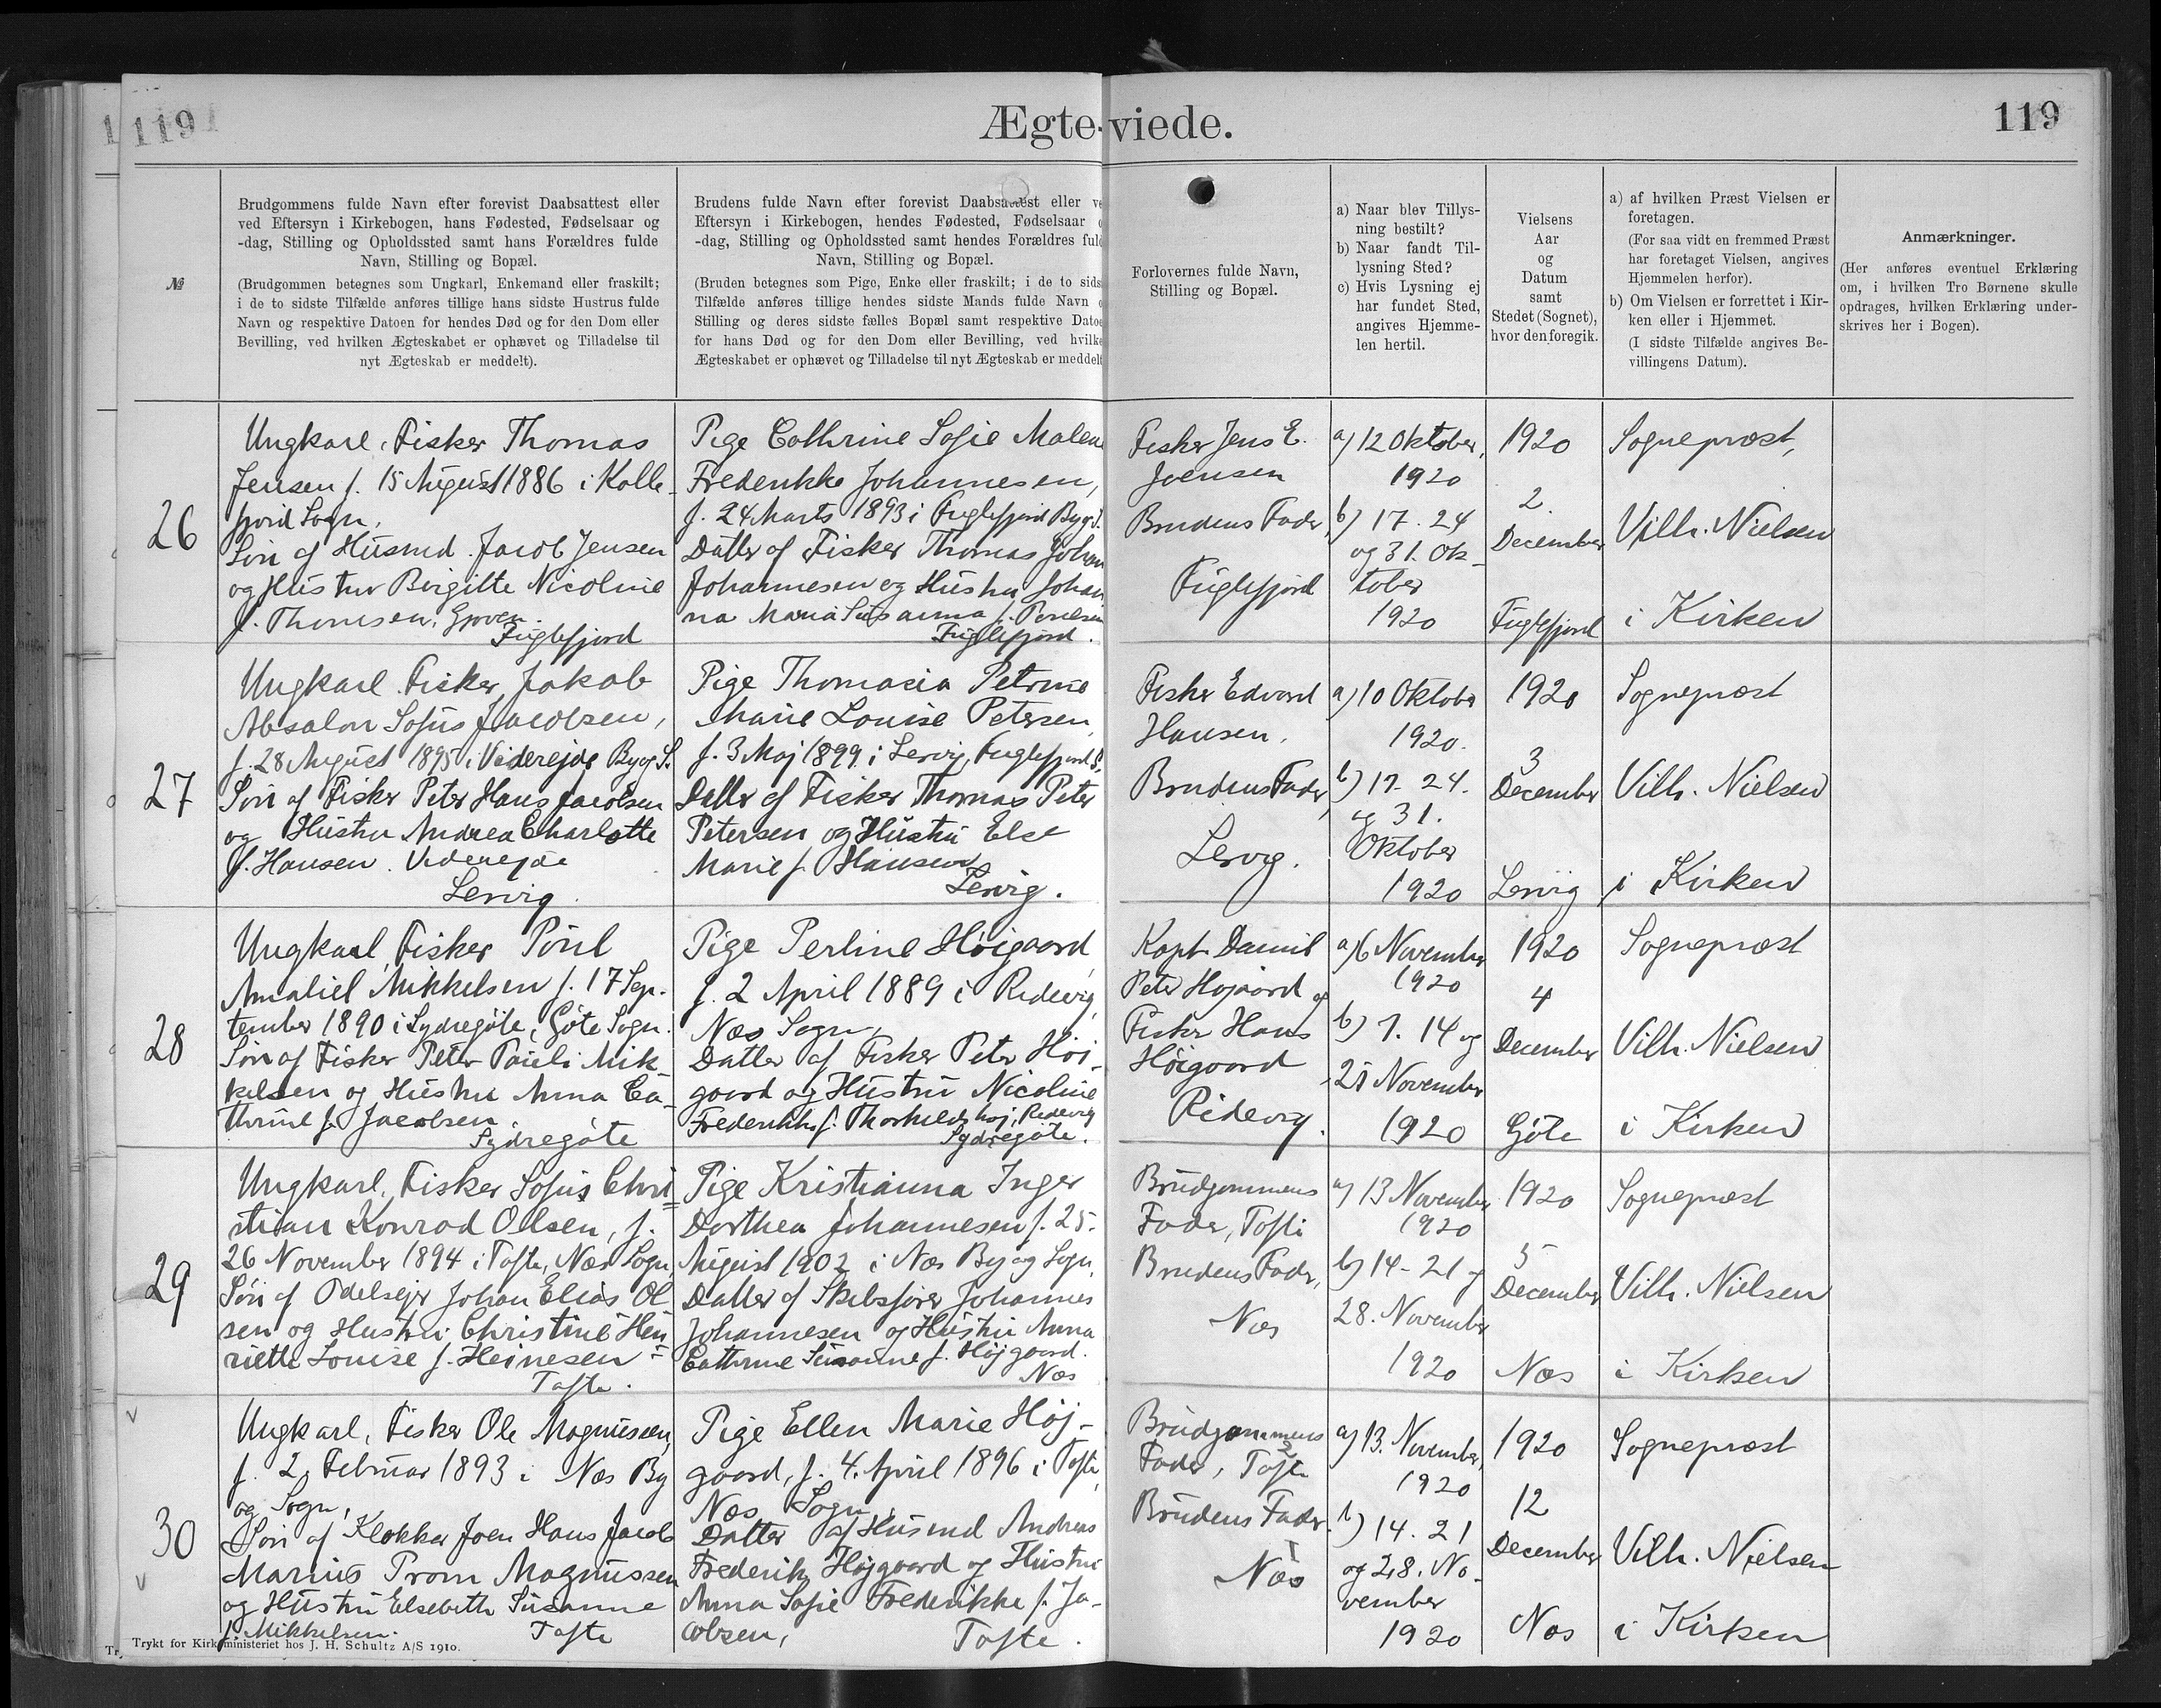 119
Ægteviede.
119
№
Brudgommens fulde Navn efter forevist Daabsattest eller
ved Eftersyn i Kirkebogen, hans Fødested, Fødselsaar og
-dag, Stilling og Opholdssted samt hans Forældres fulde
Navn, Stilling og Bopæl.
(Brudgommen betegnes som Ungkarl, Enkemand eller fraskilt;
i de to sidste Tilfælde anføres tillige hans sidste Hustrus fulde
Navn og respektive Datoen for hendes Død og for den Dom eller
Bevilling, ved hvilken Ægteskabet er ophævet og Tilladelse til
nyt Ægteskab er meddelt).
Brudens fulde Navn efter forevist Daabsattest eller ve
Eftersyn i Kirkebogen, hendes Fødested, Fødselsaar
-dag, Stilling og Opholdssted samt hendes Forældres ful
Navn, Stilling og Bopæl.
(Bruden betegnes som Pige, Enke eller fraskilt; i de to sids
Tilfælde anføres tillige hendes sidste Mands fulde Navn
Stilling og deres sidste fælles Bopæl samt respektive Dato
for hans Død og for den Dom eller Bevilling, ved hvilke
Ægteskabet er ophævet og Tilladelse til nyt Ægteskab er meddelt
Forlovernes fulde Navn,
Stilling og Bopæl.
a) Naar blev Tillys-
ning bestilt?
b) Naar fandt Til-
lysning Sted?
c) Hvis Lysning ej
har fundet Sted,
angives Hjemme-
len hertil.
Vielsens
Aar
og
Datum
samt
Stedet (Sognet),
hvor den foregik.
a) af hvilken Præst Vielsen er
foretagen.
(For saa vidt en fremmed Præst
har foretaget Vielsen, angives
Hjemmelen herfor).
b) Om Vielsen er forrettet i Kir-
ken eller i Hjemmet.
(I sidste Tilfælde angives Be-
villingens Datum).
Anmærkninger.
(Her anføres eventuel Erklæring
om, i hvilken Tro Børnene skulle
opdrages, hvilken Erklæring under-
skrives her i Bogen).
26
Ungkarl, Fisker Thomas
Jensen f. 15 August 1886 i Kolle-
fjord Sogn,
Søn af Husmd. Jacob Jensen
og Hustru Birgitte Nicoline
f. Thomsen,
Fuglefjord
Pige Cathrine Sofie Malene
Frederikke Johannesen,
f. 24 Marts 1893 i Fuglefjord By og S.
Datter af Fisker Thomas Johan
Johannesen og Hustru Johan
na Maria Susanna f. Poulsen
Fuglefjord.
Fisker Jens E.
Joensen
Brudens Fader,
Fuglefjord
a) 12 Oktober,
1920
b) 17. 24
og 31. Ok-
tober
1920
1920
2.
December
Fuglefjord
Sognepræst,
Vilh. Nielsen
i Kirken
27
Ungkarl Fisker Jakob
Absalon Sofus Jacobsen,
f. 28 August 1895 i Viderejde By og S.
Søn af Fisker Peter Hans Jacobsen
og Hustru Andrea Charlotte
f. Hansen. Videnejde
Lervig.
Pige Thomasia Petrine
Marie Louise Petersen,
f. 3 Maj 1899 i Lervig, Fuglefjord S.
Datter af Fisker Thomas Peter
Petersen og Hustru Else
Marie f. Hansen
Lervig.
Fisker Edvard
Hansen.
Brudens Fader,
Lervig.
a) 10 Oktober
1920.
b) 17. 24.
og 31.
Oktober
1920
1920
3
December
Lervig
Sognepræst
Vilh. Nielsen
i Kirken
28
Ungkarl, Fisker Poul
Amaliel Mikkelsen f. 17 Sep-
tember 1890 i Sydregøte, Gøte Sogn.
Søn af Fisker Peter Pauli Mik-
kelsen og Hustru Anna Ca-
thrine f. Jacobsen
Sydregøte
Pige Perline Høigaard,
f. 2 April 1889 i Ridevig,
Næs Sogn,
Datter af Fisker Peter Høi-
gaard og Hustru Nicoline
Frederikke f. Thorkildshøj, Ridevig
Sydregøte.
Kapt. Daniel
Peter Højgaard og
Fisker Hans
Høigaard
Ridevig.
a) 6 November
1920
b) 7. 14 og
21 November
1920
1920
4
December
Gøte
Sognepræst
Vilh. Nielsen
i Kirken
29
Ungkarl, Fisker Sofus Chri-
stian Konrad Olsen, f.
26 November 1894 i Tofte, Næs Sogn,
Søn af Odelsejer Johan Elias Ol
sen og Hustru Christine Hen
riette Louise f. Heinesen
Tofte.
Pige Kristianna Inger
Dorthea Johannesen f. 25.
August 1902 i Næs By og Sogn,
Datter af Skibsfører Johannes
Johannesen og Hustru Anna
Cathrine Susanne f. Højgaard.
Næs
Brudgommens
Fader, Tofte
Brudens Fader,
Næs
a) 13 November
1920
b) 14 - 21 og
28. November
1920
1920
5
December
Næs
Sognepræst
Vilh. Nielsen
i Kirken
30
Ungkarl, Fisker Ole Magnussen,
f. 2 Februar 1893 i Næs By
og Sogn,
Søn af Klokker Joen Hans Jacob
Marius Prom Magnussen
og Hustru Elsebeth Susanne
f. Mikkelsen.
Tofte
Pige Ellen Marie Høj-
gaard, f. 4. April 1896 i Tofte,
Næs Sogn,
Datter af Husmd Andreas
Frederik Højgaard og Hustru
Anna Sofie Frederikke f. Ja-
cobsen,
Tofte.
Brudgommens
Fader, Tofte
Brudens Fader.
Næs
a) 13. November,
1920
b) 14. 21
og 28. No-
vember
1920
1920
12
December
Næs
Sognepræst
Vilh. Nielsen
i Kirken
Trykt for Kirkeministeriet hos J. H. Schultz A/S 1910.